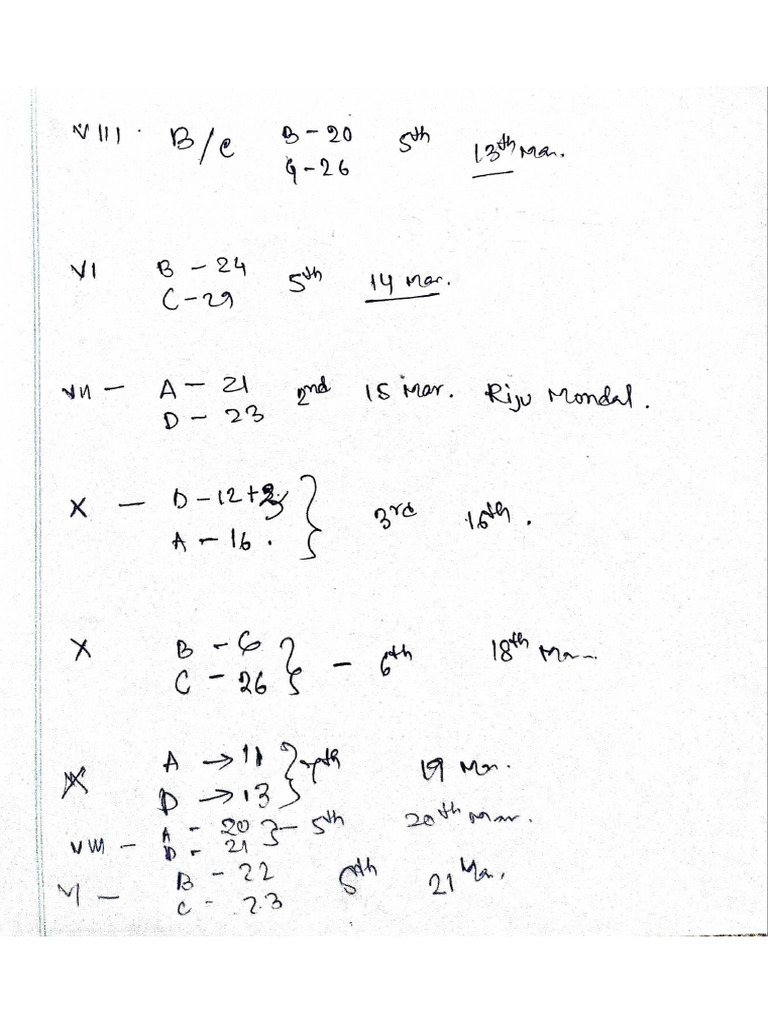 VIII. B/C B - 20 5th 13th Mar.
G - 26
VI B - 24 5th 14 Mar.
C - 29
VII - A - 21 2nd 15 Mar. Riju Mondal.
D - 23
X - D - 12 +
A - 16. } 3rd 16th.
X B - 6
C - 26 } - 6th 18th Mar
X A → 11 } 7th 19 Mar.
D → 13
VIII - A - 20 } - 5th 20th Mar.
D - 21
VI - B - 22 5th 21 Mar.
C - 23